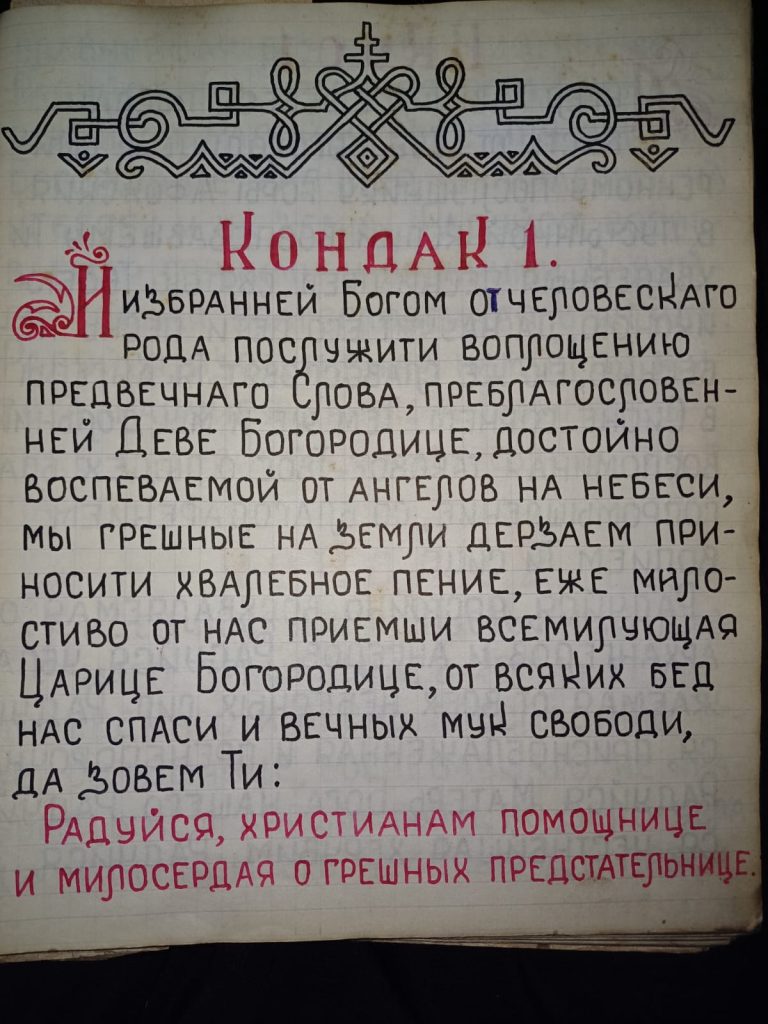 Кондак 1.
Ииизбранней Богом от человескаго
рода послужити воплощению
предвечнаго Слова, преблагословен-
ней Деве Богородице, достойно
воспеваемой от ангелов на небеси,
мы грешные на земли дерзаем при-
носити хвалебное пение, еже мило-
стиво от нас приемши всемилующая
Царице Богородице, от всяких бед
нас спаси и вечных мук свободи,
да зовем Ти:
Радуйся, христианам помощнице
и милосердая о грешных предстательнице.